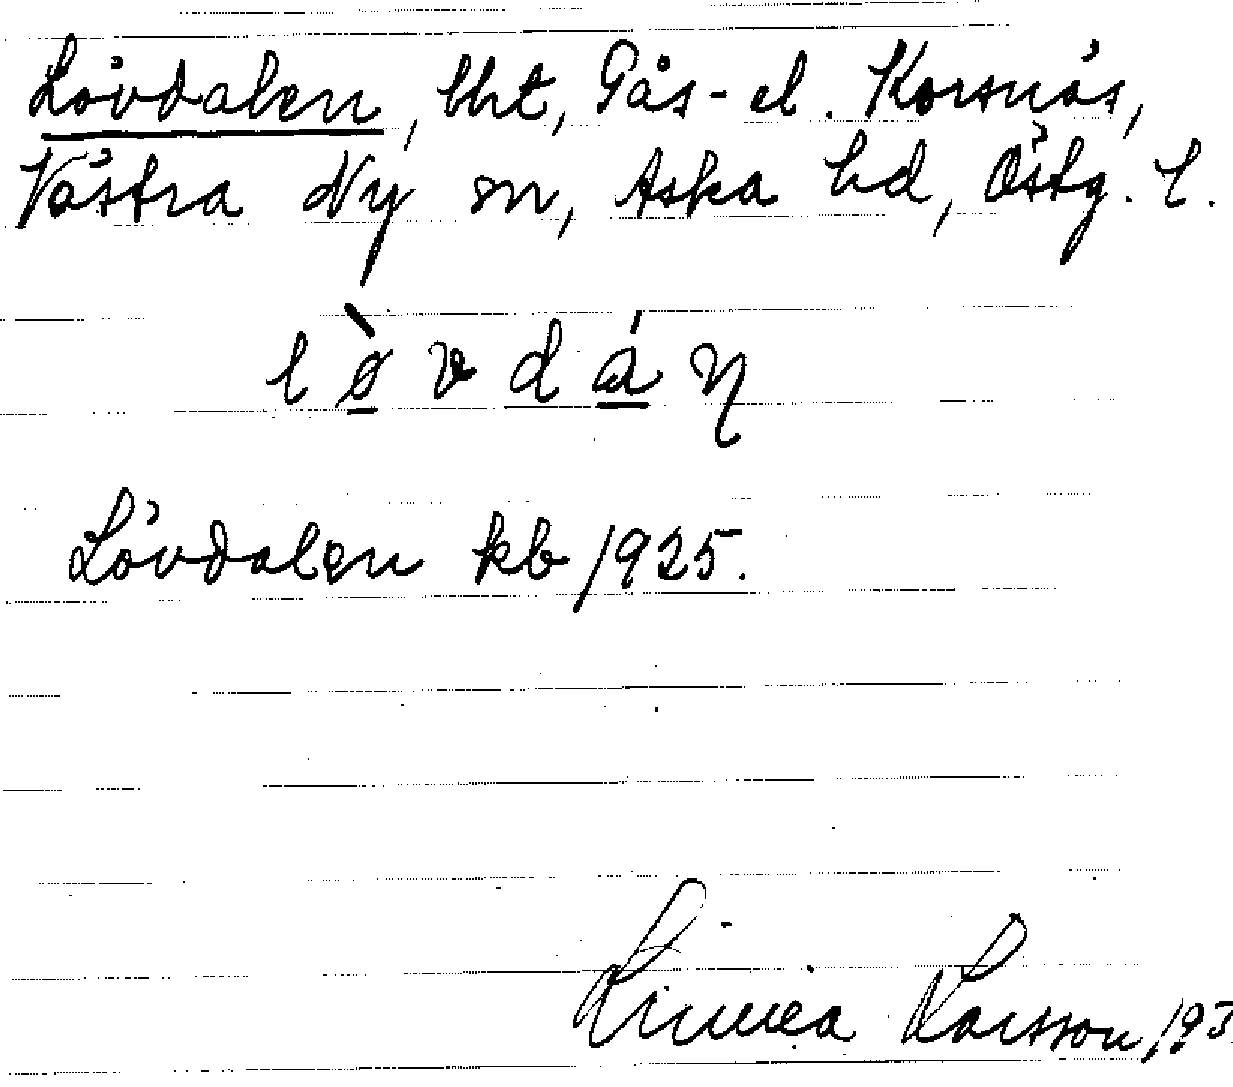 Lövdalen, lht, Gås- el. Korsnäs,
Västra Ny sn, Aska hd, Östg. l.
l ø̀ v d á n
Lövdalen kb 1925.
Linnea Larsson, 193